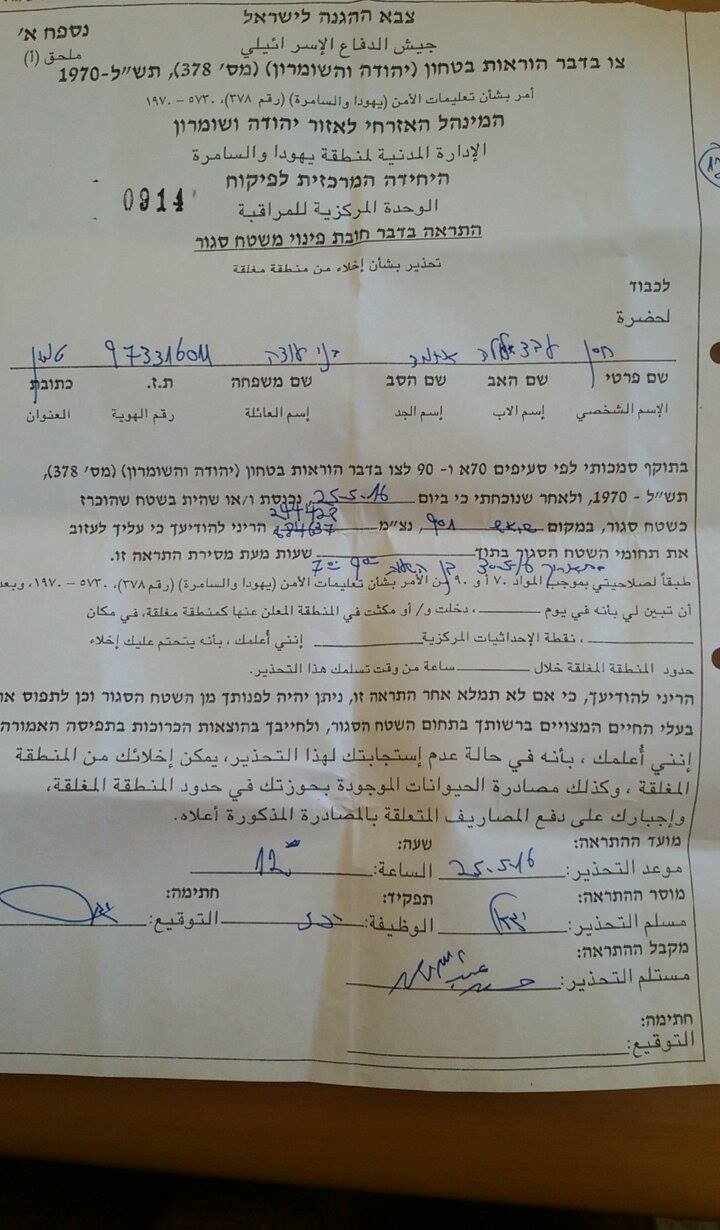 נספח א'
ملحق (أ)
צבא ההגנה לישראל
جيش الدفاع الإسرائيلي
צו בדבר הוראות בטחון (יהודה והשומרון) (מס' 378), תש"ל-1970
أمر بشأن تعليمات الأمن (يهودا والسامرة) (رقم ٣٧٨)، ٥٧٣٠ – ١٩٧٠
המינהל האזרחי לאזור יהודה ושומרון
الإدارة المدنية لمنطقة يهودا والسامرة
היחידה המרכזית לפיקוח
الوحدة المركزية للمراقبة
0914
התראה בדבר חובת פינוי משטח סגור
تحذير بشأن إخلاء من منطقة مغلقة
לכבוד
لحضرة
חסן עבדאללה בני עודה 973316011 טמון
שם פרטי שם האב שם הסב שם משפחה ת.ז. כתובת
الإسم الشخصي إسم الاب إسم الجد إسم العائلة رقم الهوية العنوان
בתוקף סמכותי לפי סעיפים 70א ו- 90 לצו בדבר הוראות בטחון (יהודה והשומרון) (מס' 378),
תש"ל - 1970, ולאחר שנוכחתי כי ביום 25.5.16, נכנסת ו/או שהית בשטח שהוכרז
כשטח סגור, במקום 901, נצ"מ 244423 הריני להודיעך כי עליך לעזוב
את תחומי השטח הסגור בתוך שעות מעת מסירת התראה זו.
طبقاً لصلاحيتي بموجب المواد ٧٠ أ و ٩٠ من الأمر بشأن تعليمات الأمن (يهودا والسامرة) (رقم ٣٧٨)، ٥٧٣٠ – ١٩٧٠، وبعد
أن تبين لي بأنه في يوم ، دخلت و/ أو مكثت في المنطقة المعلن عنها كمنطقة مغلقة، في مكان
، نقطة الإحداثيات المركزية إنني أُعلمك ، بأنه يتحتم عليك إخلاء
حدود المنطقة المغلقة خلال ساعة من وقت تسلمك هذا التحذير.
הריני להודיעך, כי אם לא תמלא אחר התראה זו, ניתן יהיה לפנותך מן השטח הסגור וכן לתפוס את
בעלי החיים המצויים ברשותך בתחום השטח הסגור, ולחייבך בהוצאות הכרוכות בתפיסה האמורה
إنني أُعلمك ، بأنه في حالة عدم إستجابتك لهذا التحذير، يمكن إخلائك من المنطقة
المغلقة ، وكذلك مصادرة الحيوانات الموجودة بحوزتك في حدود المنطقة المغلقة،
وإجبارك على دفع المصاريف المتعلقة بالمصادرة المذكورة أعلاه.
מועד ההתראה: שעה:
موعد التحذير: 25.5.16 الساعة: 12
מוסר ההתראה: תפקיד: חתימה:
مسلم التحذير: الوظيفة: التوقيع:
מקבל ההתראה:
مستلم التحذير:
חתימה:
التوقيع: